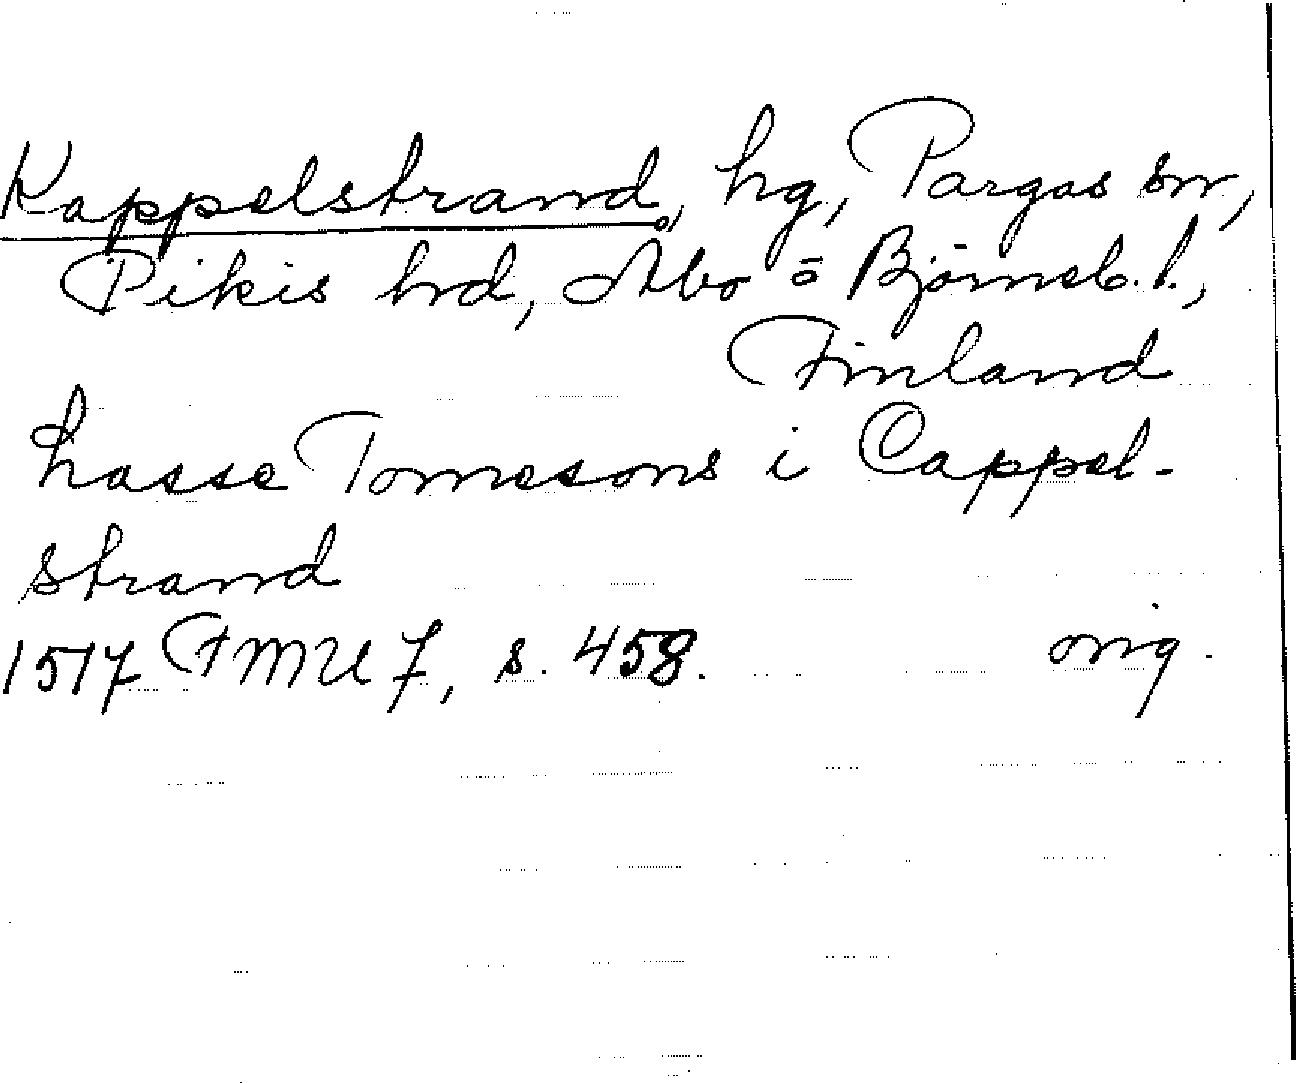 Kappelstrand, hg, Pargas sn,
Pikis hd, Åbo o Björneb. l.,
Finland
hasse Tomesons i Cappel-
strand
1517 FMU 7, s. 458. orig.